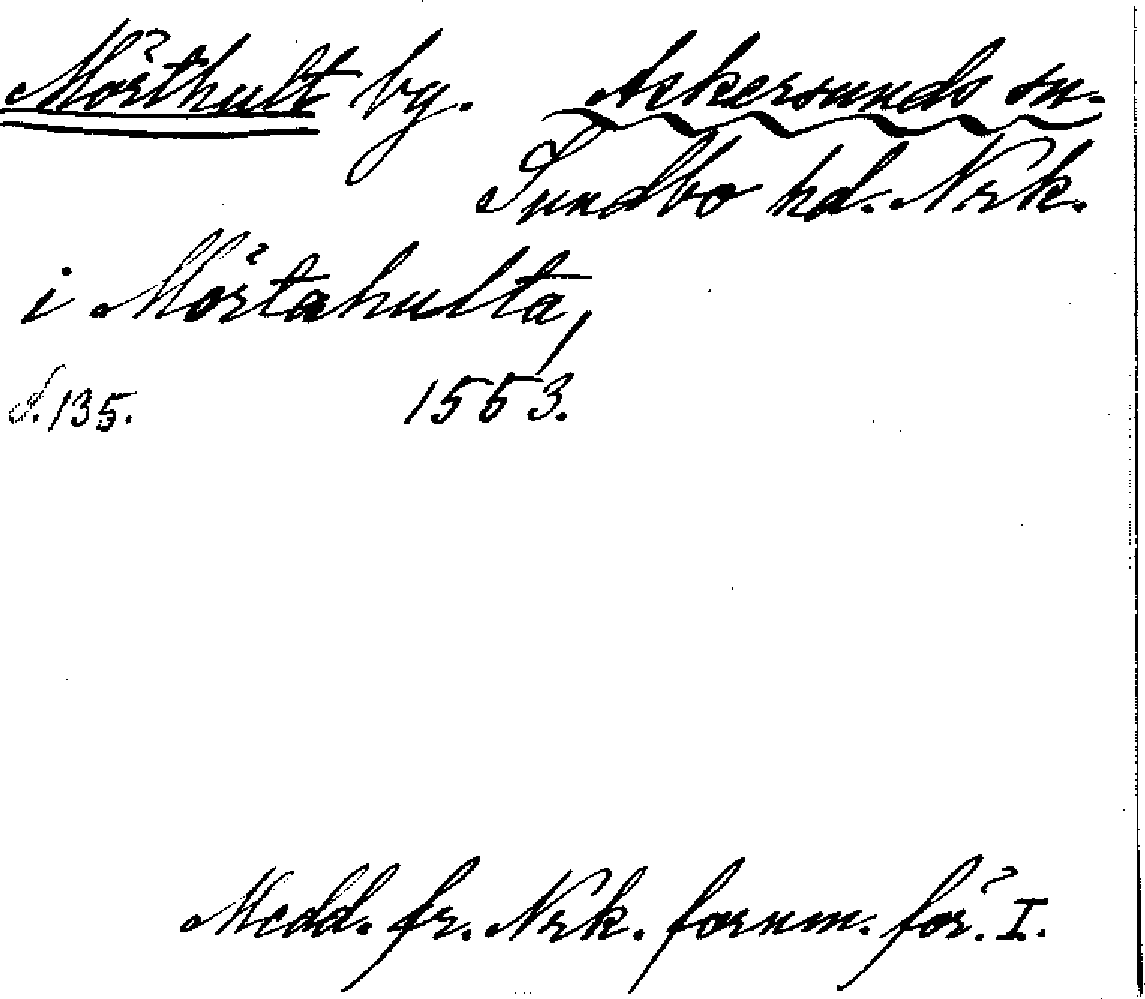 Mörthult by. Askersunds sn.
Sundbo hd. Nrk.
i Mörtahulta,
S. 135. 1553.
Medd. fr. Nrk. fornm. för. I.